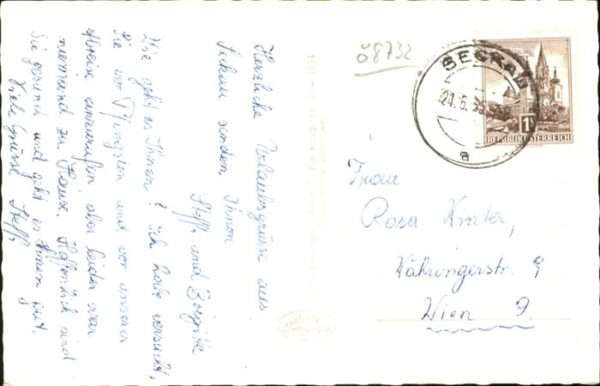 Herzliche Urlaubsgrüsse aus
Seckau senden Ihnen
Steffi und Brigitte
Wie geht es Ihnen? Ich habe versucht,
Sie vor Pfingsten und vor unserer
Abreise anzurufen aber leider war
niemand zu Hause. Hoffentlich sind
Sie gesund und geht es Ihnen gut.
Viele Grüsse Steffi
ö 8732
SECKAU
21.6.
a
1S
REPUBLIK ÖSTERREICH
Frau
Rosa Winter,
Währingerstr. 9
Wien 9.